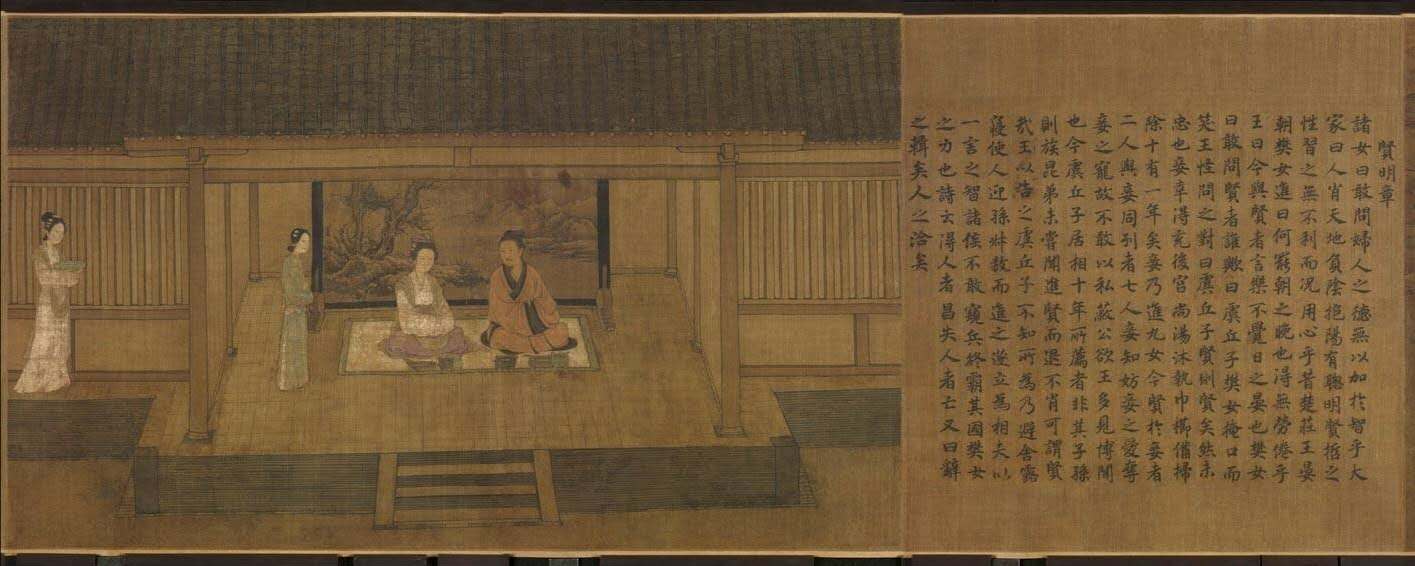 賢明章
諸女曰敢問婦人之德無以加於智乎大
家曰人肖天地負陰抱陽有聰明賢哲之
性習之無不利而況用心乎昔楚莊王晏
朝樊女進曰何罷朝之晚也得無勞倦乎
王曰今與賢者言樂不覺日之晏也樊女
曰敢問賢者誰歟曰虞丘子樊女掩口而
笑王怪問之對曰虞丘子賢則賢矣然未
忠也妾幸得充後宮尚湯沐執巾櫛備掃
除十有一年矣妾乃進九女今賢於妾者
二人與妾同列者七人妾知妨妾之愛奪
妾之寵故不敢以私蔽公欲王多見博聞
也今虞丘子居相十年所薦者非其子孫
則族昆弟未嘗聞進賢而退不肖可謂賢
哉王以告之虞丘子不知所為乃避舍露
寢使人迎孫叔敖而進之遂立為相夫以
一言之智諸侯不敢窺兵終霸其國樊女
之力也詩云得人者昌失人者亡又曰辭
之輯矣人之洽矣